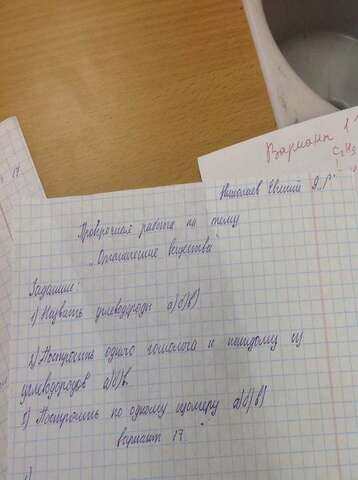 17
Вариант 1
C₂H₅
Николаев Евгений 9 "Г"
Проверочная работа по тему
„Органические вещества"
Задание:
1) Назвать углеводороды а)б)в)
2) Построить одного гомолога к каждому из
углеводородов а)б)в.
3) Построить по одному изомеру а)б)в)
вариант 17